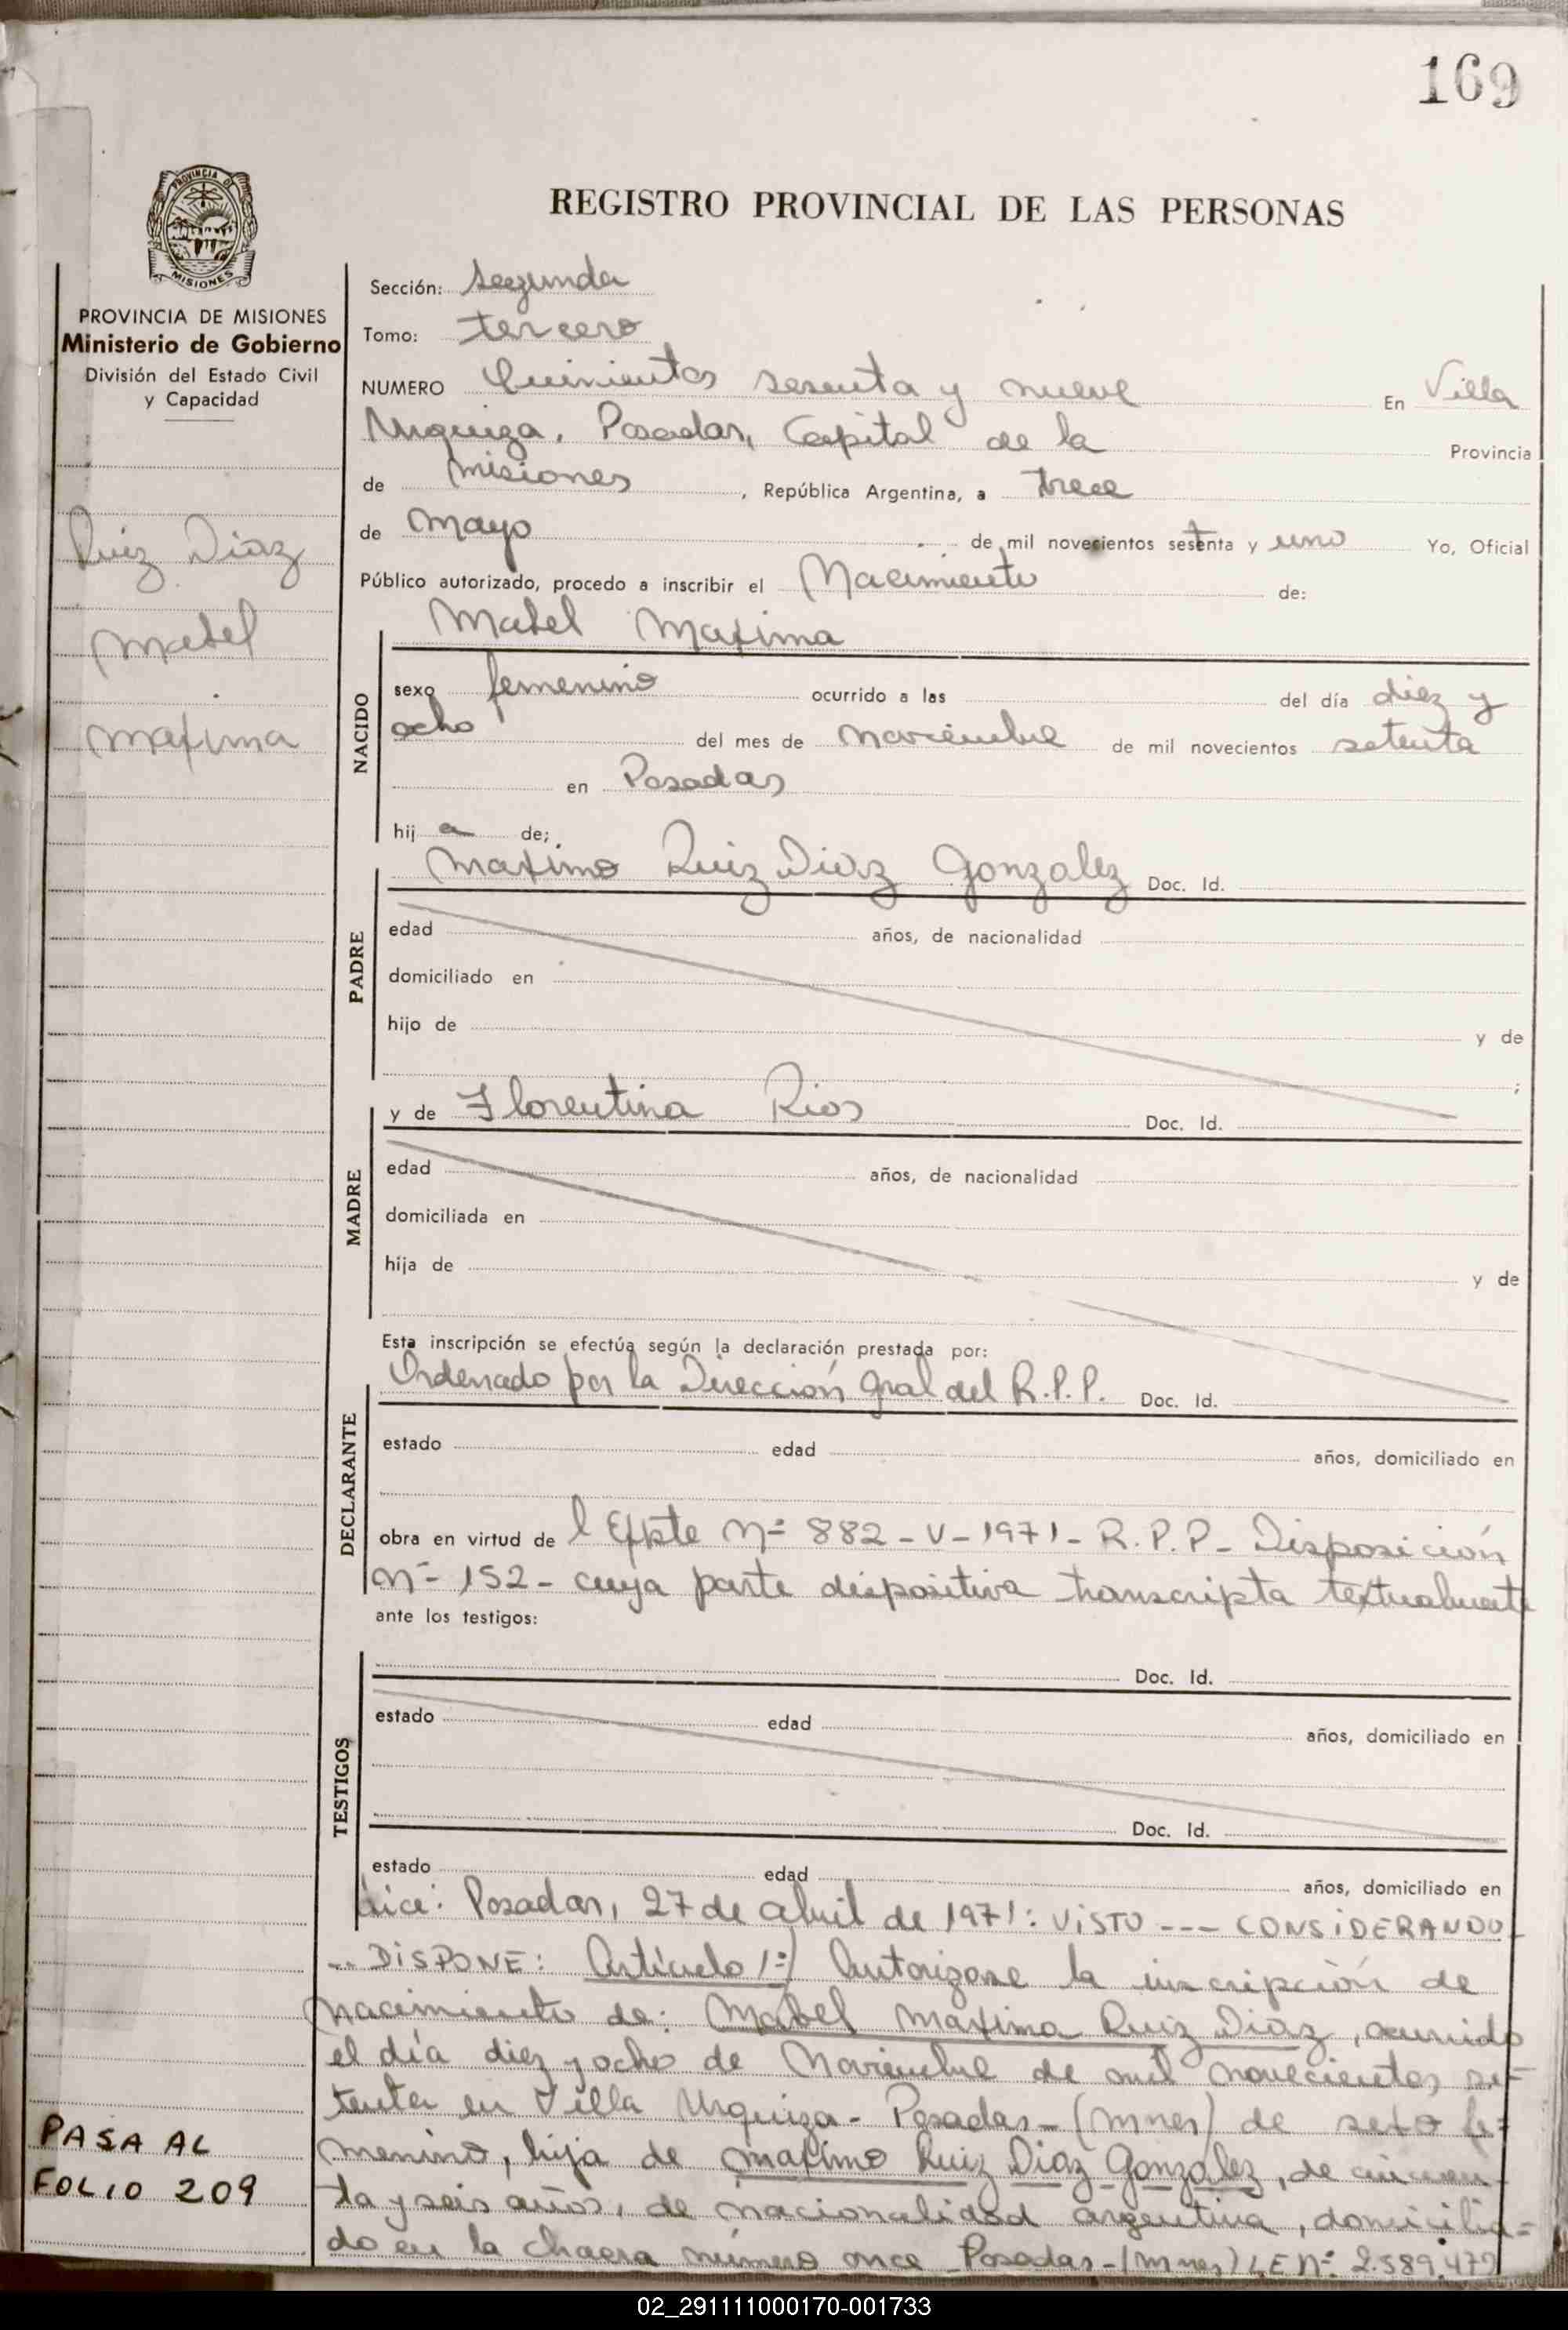 169
PROVINCIA DE
MISIONES
REGISTRO PROVINCIAL DE LAS PERSONAS
PROVINCIA DE MISIONES
Ministerio de Gobierno
División del Estado Civil
y Capacidad
Ruiz Diaz
Mabel
Maxima
Sección: segunda
Tomo: tercero
NUMERO Quinientos sesenta y nueve En Villa
Urquiza, Posadas, Capital de la Provincia
de Misiones, República Argentina, a trece
de Mayo de mil novecientos setenta y uno Yo, Oficial
Público autorizado, procedo a inscribir el Nacimiento de:
Mabel Maxima
NACIDO
sexo femenino ocurrido a las del día diez y
ocho del mes de noviembre de mil novecientos setenta
en Posadas
hij a de;
Maximo Ruiz Diaz Gonzalez Doc. Id.
PADRE
edad años, de nacionalidad
domiciliado en
hijo de y de
;
y de Florentina Rios Doc. Id.
MADRE
edad años, de nacionalidad
domiciliada en
hija de y de
Esta inscripción se efectúa según la declaración prestada por:
Ordenado por la Dirección Gral del R.P.P. Doc. Id.
DECLARANTE
estado edad años, domiciliado en
obra en virtud de l Expte Nº 882-V-1971-R.P.P- Disposición
Nº 152- cuya parte dispositiva transcripta textualmente
ante los testigos:
Doc. Id.
TESTIGOS
estado edad años, domiciliado en
Doc. Id.
estado edad años, domiciliado en
dice: Posadas, 27 de abril de 1971: VISTO --- CONSIDERANDO
-- DISPONE: Artículo 1º) Autorizase la inscripción de
nacimiento de: Mabel Maxima Ruiz Diaz, ocurrido
el día diez y ocho de Noviembre de mil novecientos se-
tenta en Villa Urquiza- Posadas-(Mnes) de sexo fe-
menino, hija de Maximo Ruiz Diaz Gonzalez, de cincuen-
ta y seis años, de nacionalidad argentina, domicilia-
do en la chacra número once Posadas-(Mnes) LE Nº 2.589.477
PASA AL
FOLIO 209
02_291111000170-001733